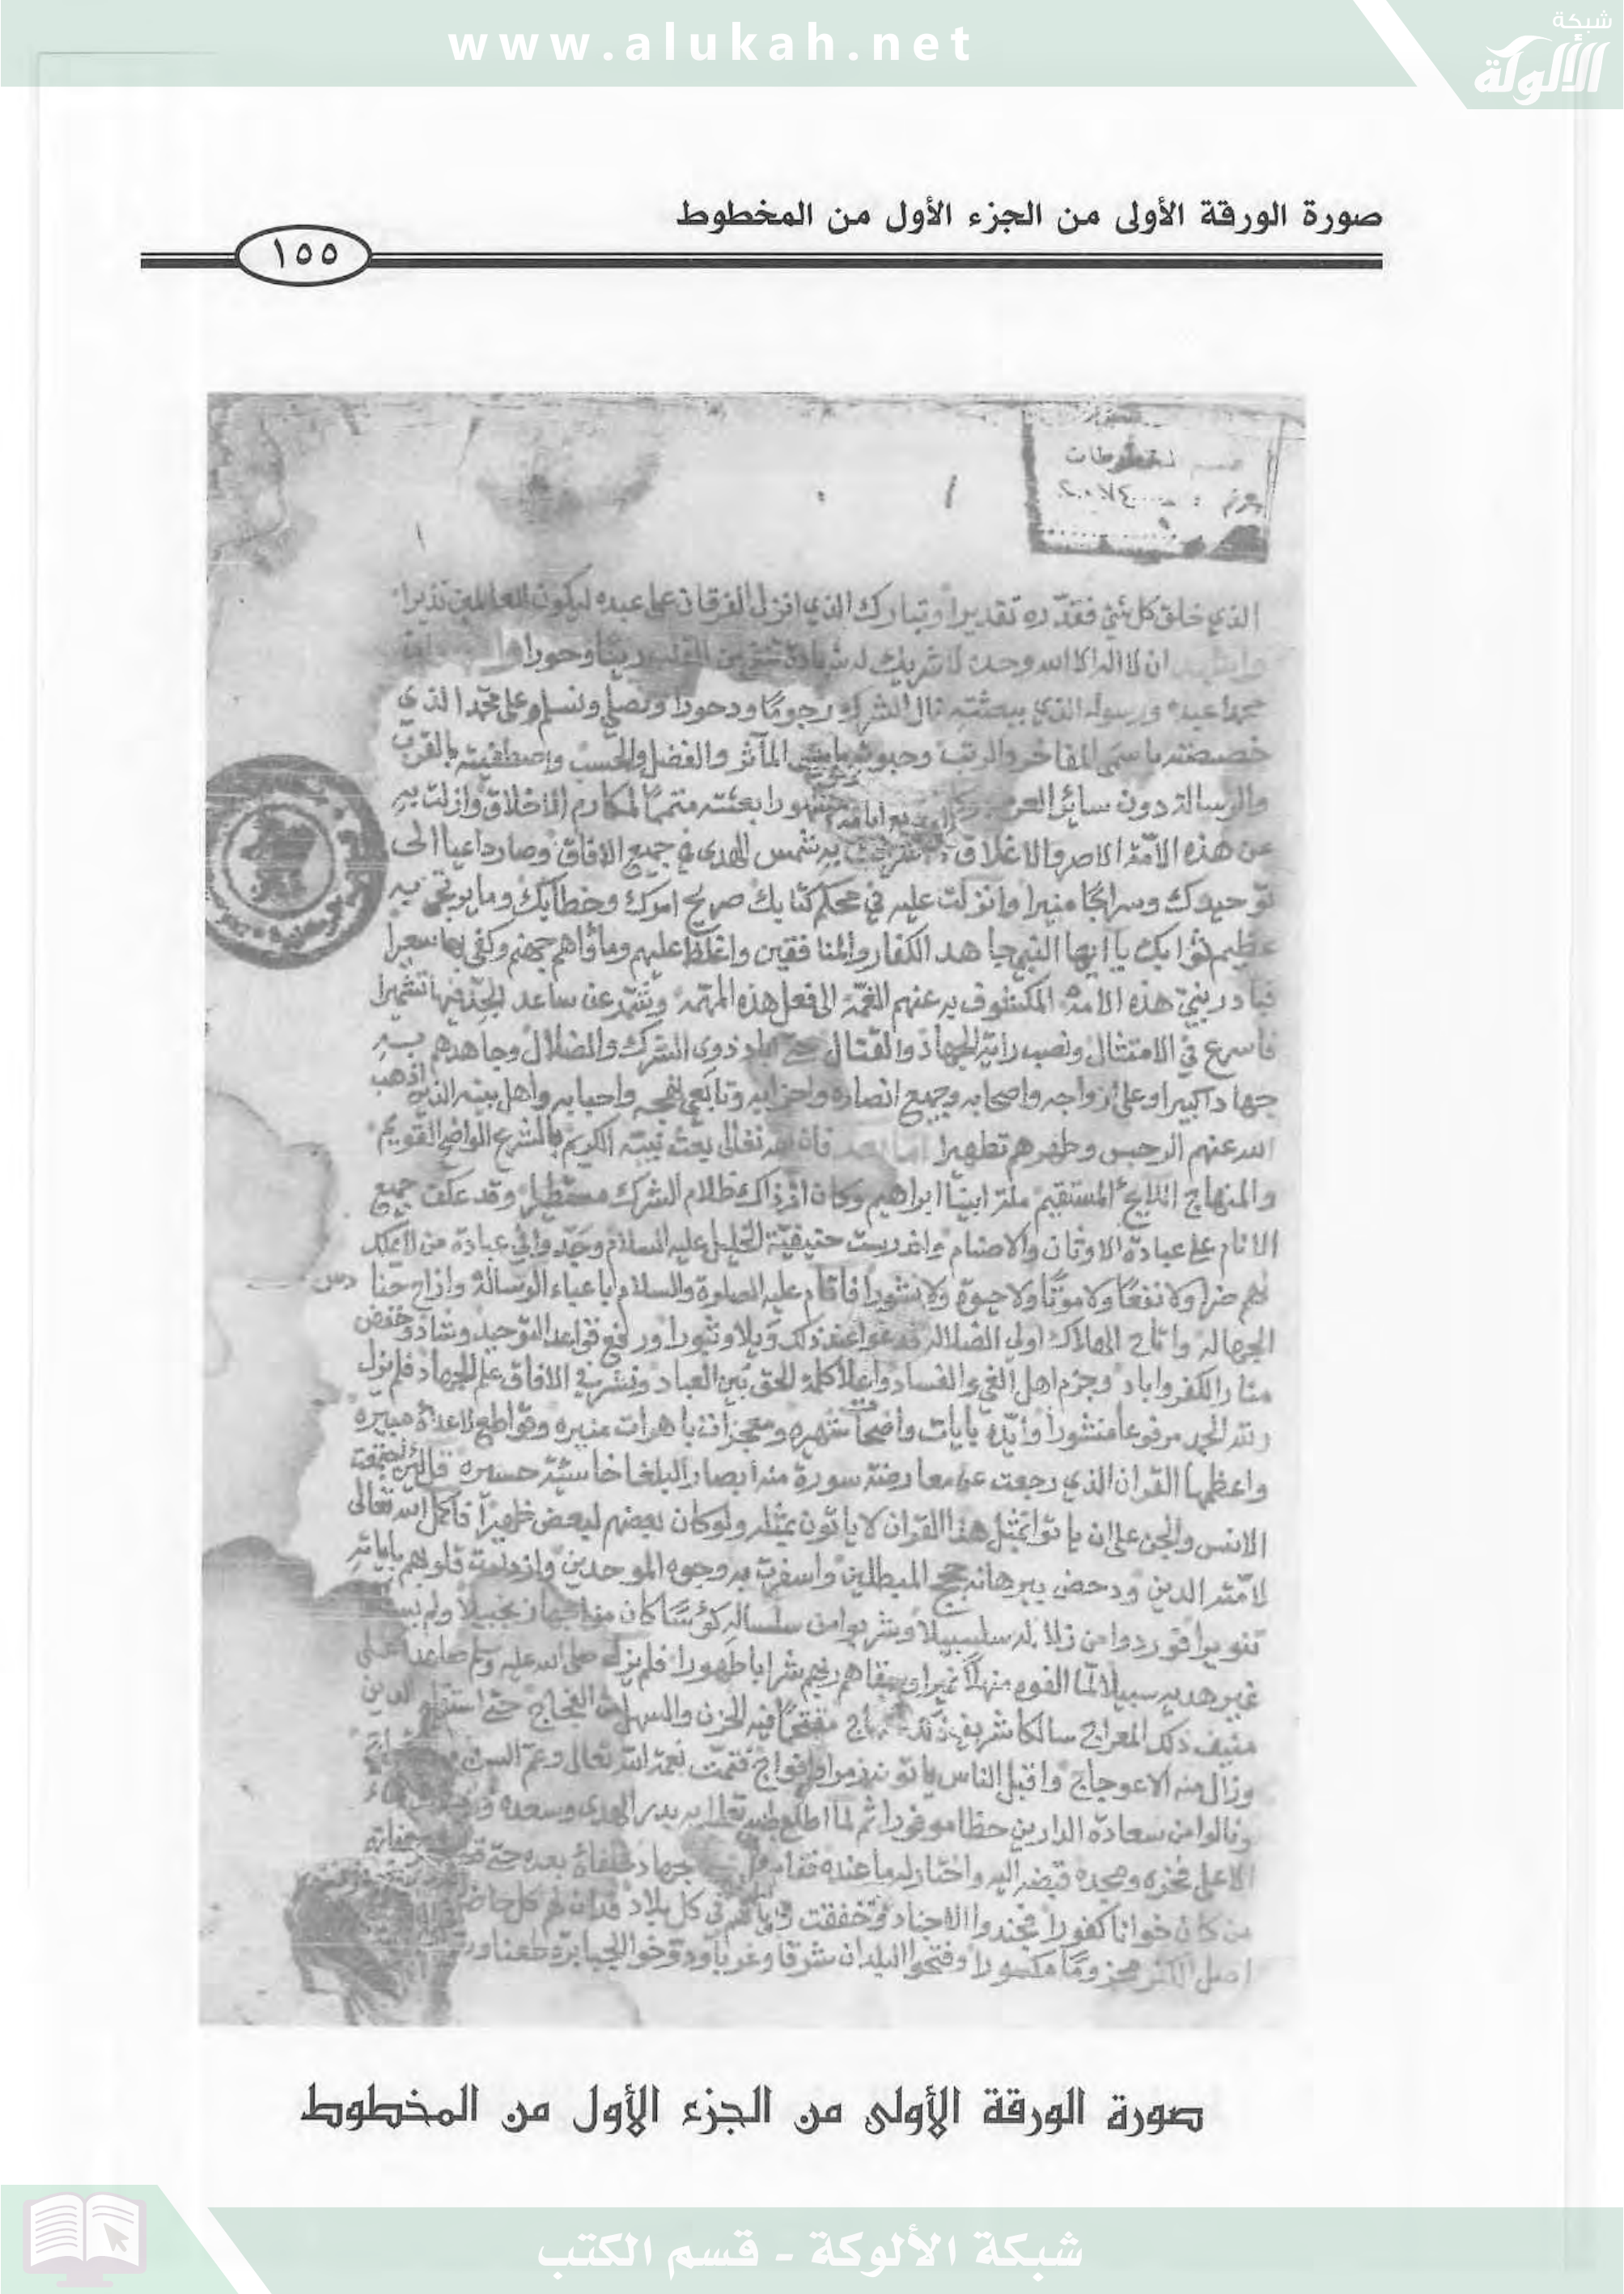 www.alukah.net
شبكة
الألوكة
صورة الورقة الأولى من الجزء الأول من المخطوط
١٥٥
الذي خلق كل شئ فقدّره تقديرا وتبارك الذي انزل الفرقان على عبده ليكون للعالمين نذيرا
ان لا اله الا الله وحده لا شريك له شهادة
عبده ورسوله الذي ببعثته نال الشرك رجومًا ودحورا ونصلي ونسلم على محمد الذي
خصصته باسمى المفاخر والرتب وحبوته المآثر والفضل والحسب واصطفيته بالقرب
والرسالة دون سائر العرب بعثته متممًا لمكارم الاخلاق وازلت به
عن هذه الامّة الاصر والاغلاق به شمس الهدى في جميع الافاق وصار داعيا الى
توحيدك وسراجًا منيرا وانزلت عليه في محكم كتابك صريح امرك وخطابك وما يرتجى به
عظيم ثوابك يا ايها النبي جاهد الكفار والمنافقين واغلظ عليهم وماواهم جهنم وكفى بها سعيرا
فبادر نبيّ هذه الامة المكشوف به عنهم الغمّة الى فعل هذه المهمّة وشمّر عن ساعد الجدّ فيها تشميرا
فاسرع في الامتثال ونصب راية الجهاد والقتال حتى اباد ذوي الشرك والضلال وجاهدهم به
جهادا كبيرا وعلى ازواجه واصحابه وجميع انصاره واحزابه وتابعي نهجه واحبابه واهل بيته الذين اذهب
الله عنهم الرجس وطهرهم تطهيرا اما بعد فان الله تعالى بعث نبيّه الكريم بالشرع الواضح القويم
والمنهاج اللايح المستقيم ملة ابينا ابراهيم وكان اذ ذاك ظلام الشرك وقد عكف جميع
الانام على عبادة الاوثان والاصنام واندرست حنيفيّة الخليل عليه السلام وجدّوا في عبادة من لا يملك
لهم ضرا ولا نفعًا ولا موتًا ولا حيوة ولا نشورا فاقام عليه الصلوة والسلام باعباء الرسالة وازاح حنا دس
الجهالة واتاح الهلاك اولي الضلالة فدعوا عند ذلك ويلا وثبورا ورفع قواعد التوحيد وشاد وخفض
منار الكفر واباد وحزم اهل الغي والفساد واعلا كلمة الحق بين العباد ونشر في الافاق علم الجهاد فلم يزل
ولله الحمد مرفوعا منشورا وايّده بايات شهيره ومعجزات باهرات منيره وقواطع لاعدائه مبيره
واعظمها القران الذي رجعت عن معارضة سورة منه ابصار البلغا خاسئة حسيره قل لئن اجتمعت
الانس والجن على ان ياتوا بمثل هذا القران لا ياتون بمثله ولو كان بعضهم لبعض ظهيرًا فاكمل الله تعالى
لامّته الدين ودحض ببرهانه حجج المبطلين واسفرت به وجوه الموحدين وازدادت قلوبهم باياته
تنويرا فوردوا من زلاله سلسبيلا وشربوا من سلساله كؤسًا كان مزاجها زنجبيلا ولم
غير هديه سبيلا لمّا الفوه منهلًا نميرا وسقاهم ربهم شرابا طهورا فلم يزل صلى الله عليه وسلم صاعدا على
منيف ذلك المعراج سالكا شريف ذلك مقتحمًا فيه الحزن والسهل الفجاج حتى استقام الدين
وزال منه الاعوجاج واقبل الناس ياتونه زمرا وافواج فتمّت نعمة الله تعالى وعمّ
ونالوا من سعادة الدارين حظا موفورا ثم لما اطلع بدر الهدى وسعده
الاعلى فخره ومجده قبضه اليه واختار له ما عنده جهاد خلفاؤه بعده حتى
من كان خوانا كفورا فجندوا الاجناد وخفقت في كل بلاد
اصل الكفر مجزومًا مكسورا وفتحوا البلدان شرقا وغربا ودوّخوا الجبابرة طعنا
صورة الورقة الأولى من الجزء الأول من المخطوط
شبكة الألوكة - قسم الكتب